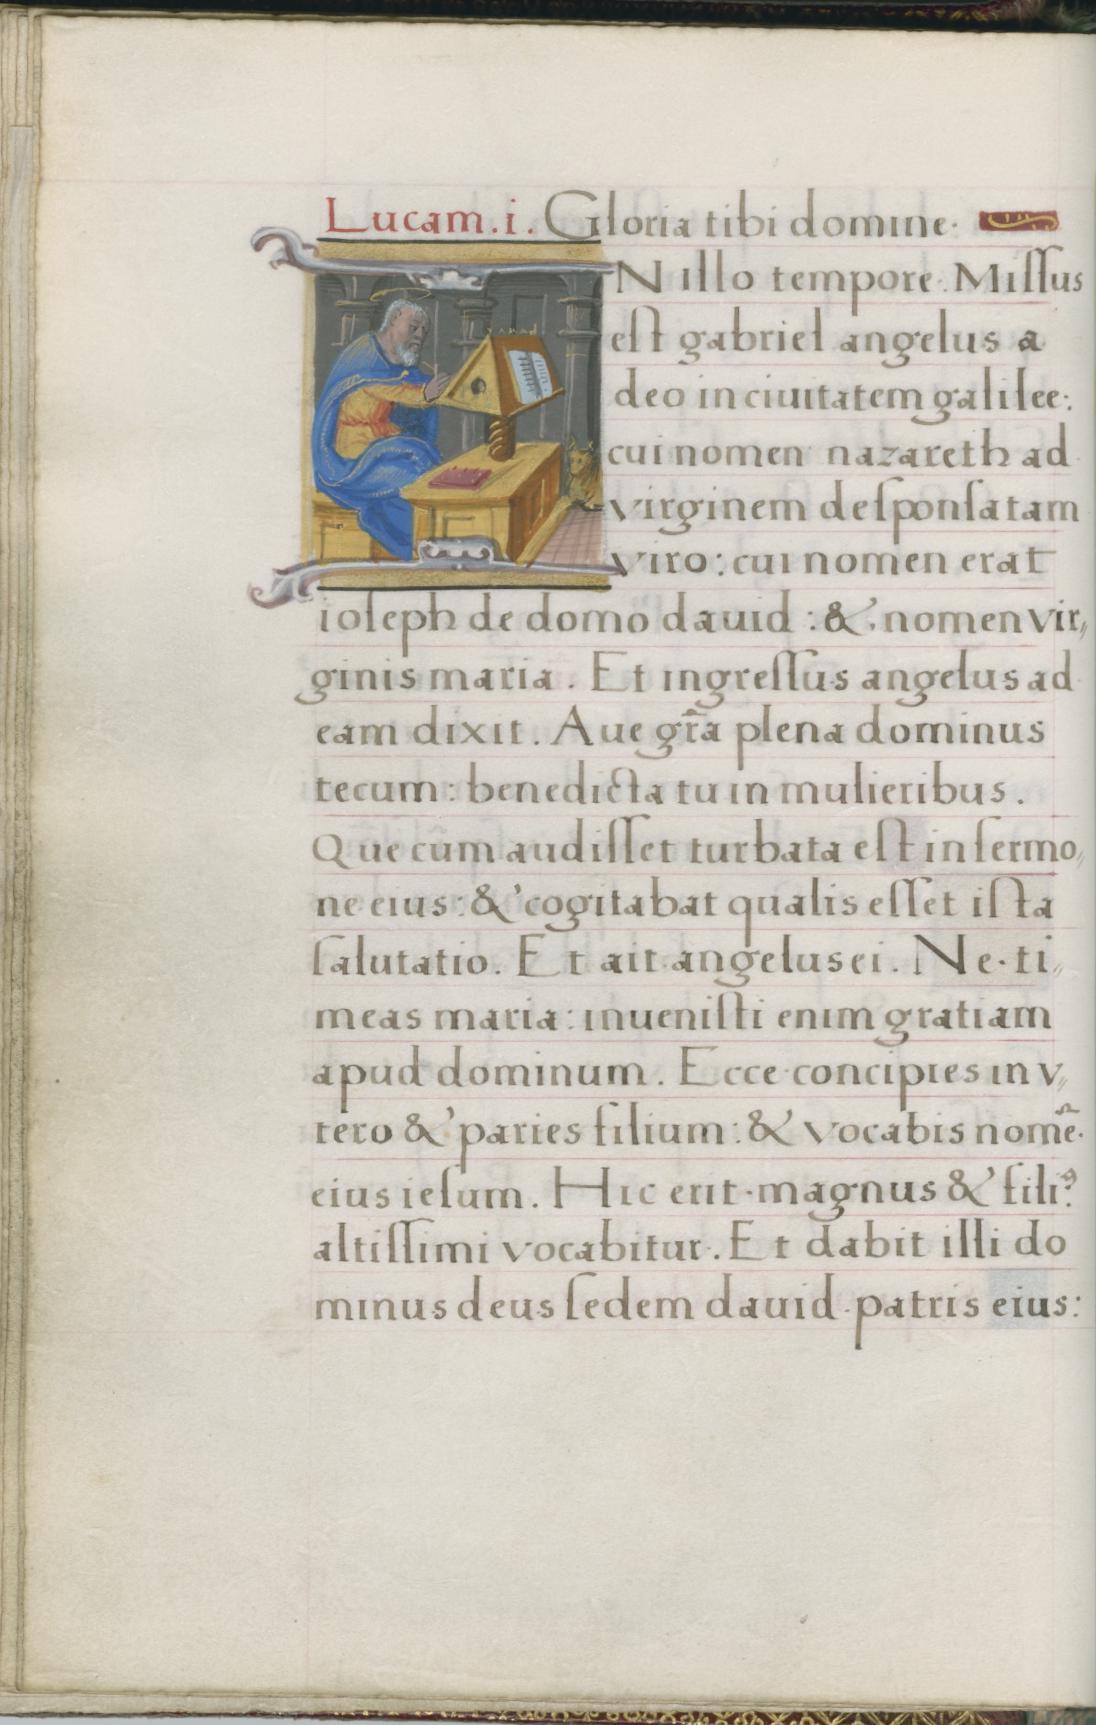 Lucam.i. Gloria tibi domine.
N illo tempore. Miſſus
eſt gabriel angelus a
deo in ciuitatem galilee:
cui nomen nazareth ad
virginem deſponſatam
viro: cui nomen erat
ioſeph de domo dauid: & nomen vir,,
ginis maria. Et ingreſſus angelus ad
eam dixit. Aue gr̃a plena dominus
tecum: benedicta tu in mulieribus.
Que cum audiſſet turbata eſt in ſermo,,
ne eius: & cogitabat qualis eſſet iſta
ſalutatio. Et ait angelus ei. Ne ti,,
meas maria: inueniſti enim gratiam
apud dominum. Ecce concipies in v,,
tero & paries filium: & vocabis nom̃e.
eius ieſum. Hic erit magnus & filiꝰ
altiſſimi vocabitur. Et dabit illi do
minus deus ſedem dauid patris eius: